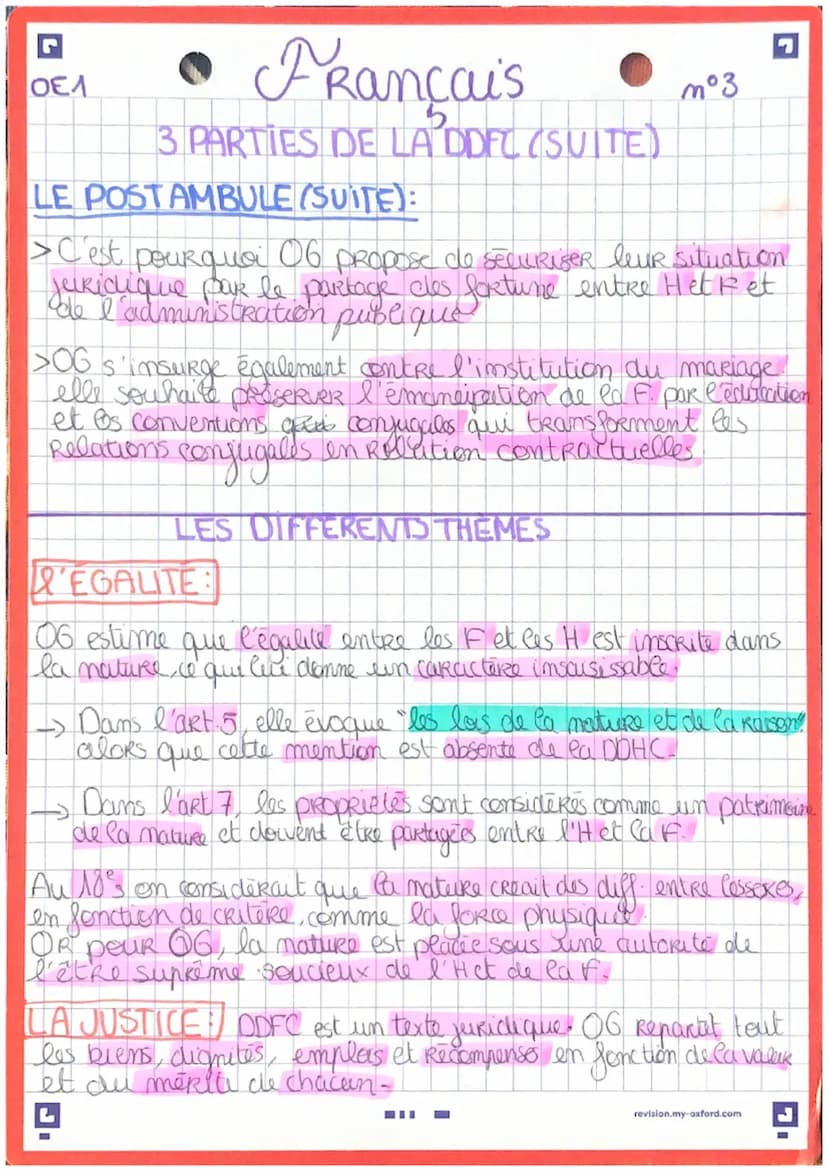 OE1
Français
n°3
3 PARTIES DE LA DDFC (SUITE)
LE POSTAMBULE (SUITE):
> C'est pourquoi OG propose de sécuriser leur situation
juridique par le partage des fortune entre H et F et
de l'administration publique
> OG s'insurge également contre l'institution du mariage.
elle souhaite préserver l'émancipation de la F. par l'éducation
et les conventions conjugales qui transforment les
relations conjugales en relation contractuelles.
LES DIFFÉRENTS THÈMES
L'ÉGALITÉ:
OG estime que l'égalité entre les F et les H est inscrite dans
la nature, ce qui lui donne un caractère insaisisable.
-> Dans l'art.5, elle évoque "les lois de la nature et de la raison"
alors que cette mention est absente de la DDHC.
-> Dans l'art 7, les propriétés sont considérés comme un patrimoine
de la nature et doivent être partagées entre l'H et la F.
Au 18e s on considérait que la nature créait des diff. entre les sexes,
en fonction de critère, comme la force physique.
OR pour OG, la nature est placée sous une autorité de
l'être suprême soucieux de l'H et de la F.
LA JUSTICE: DDFC est un texte juridique. OG repartit tout
les biens, dignités, emplois et récompenses en fonction de la valeur
et du mérite de chacun-
revision.my-oxford.com